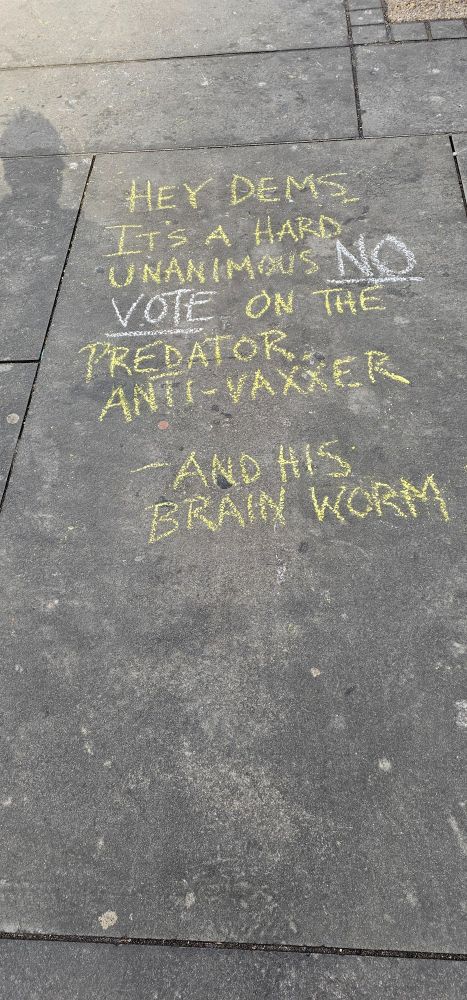 HEY DEMS_
IT'S A HARD
UNANIMOUS NO
VOTE ON THE
PREDATOR,
ANTI-VAXXER
- AND HIS
BRAIN WORM